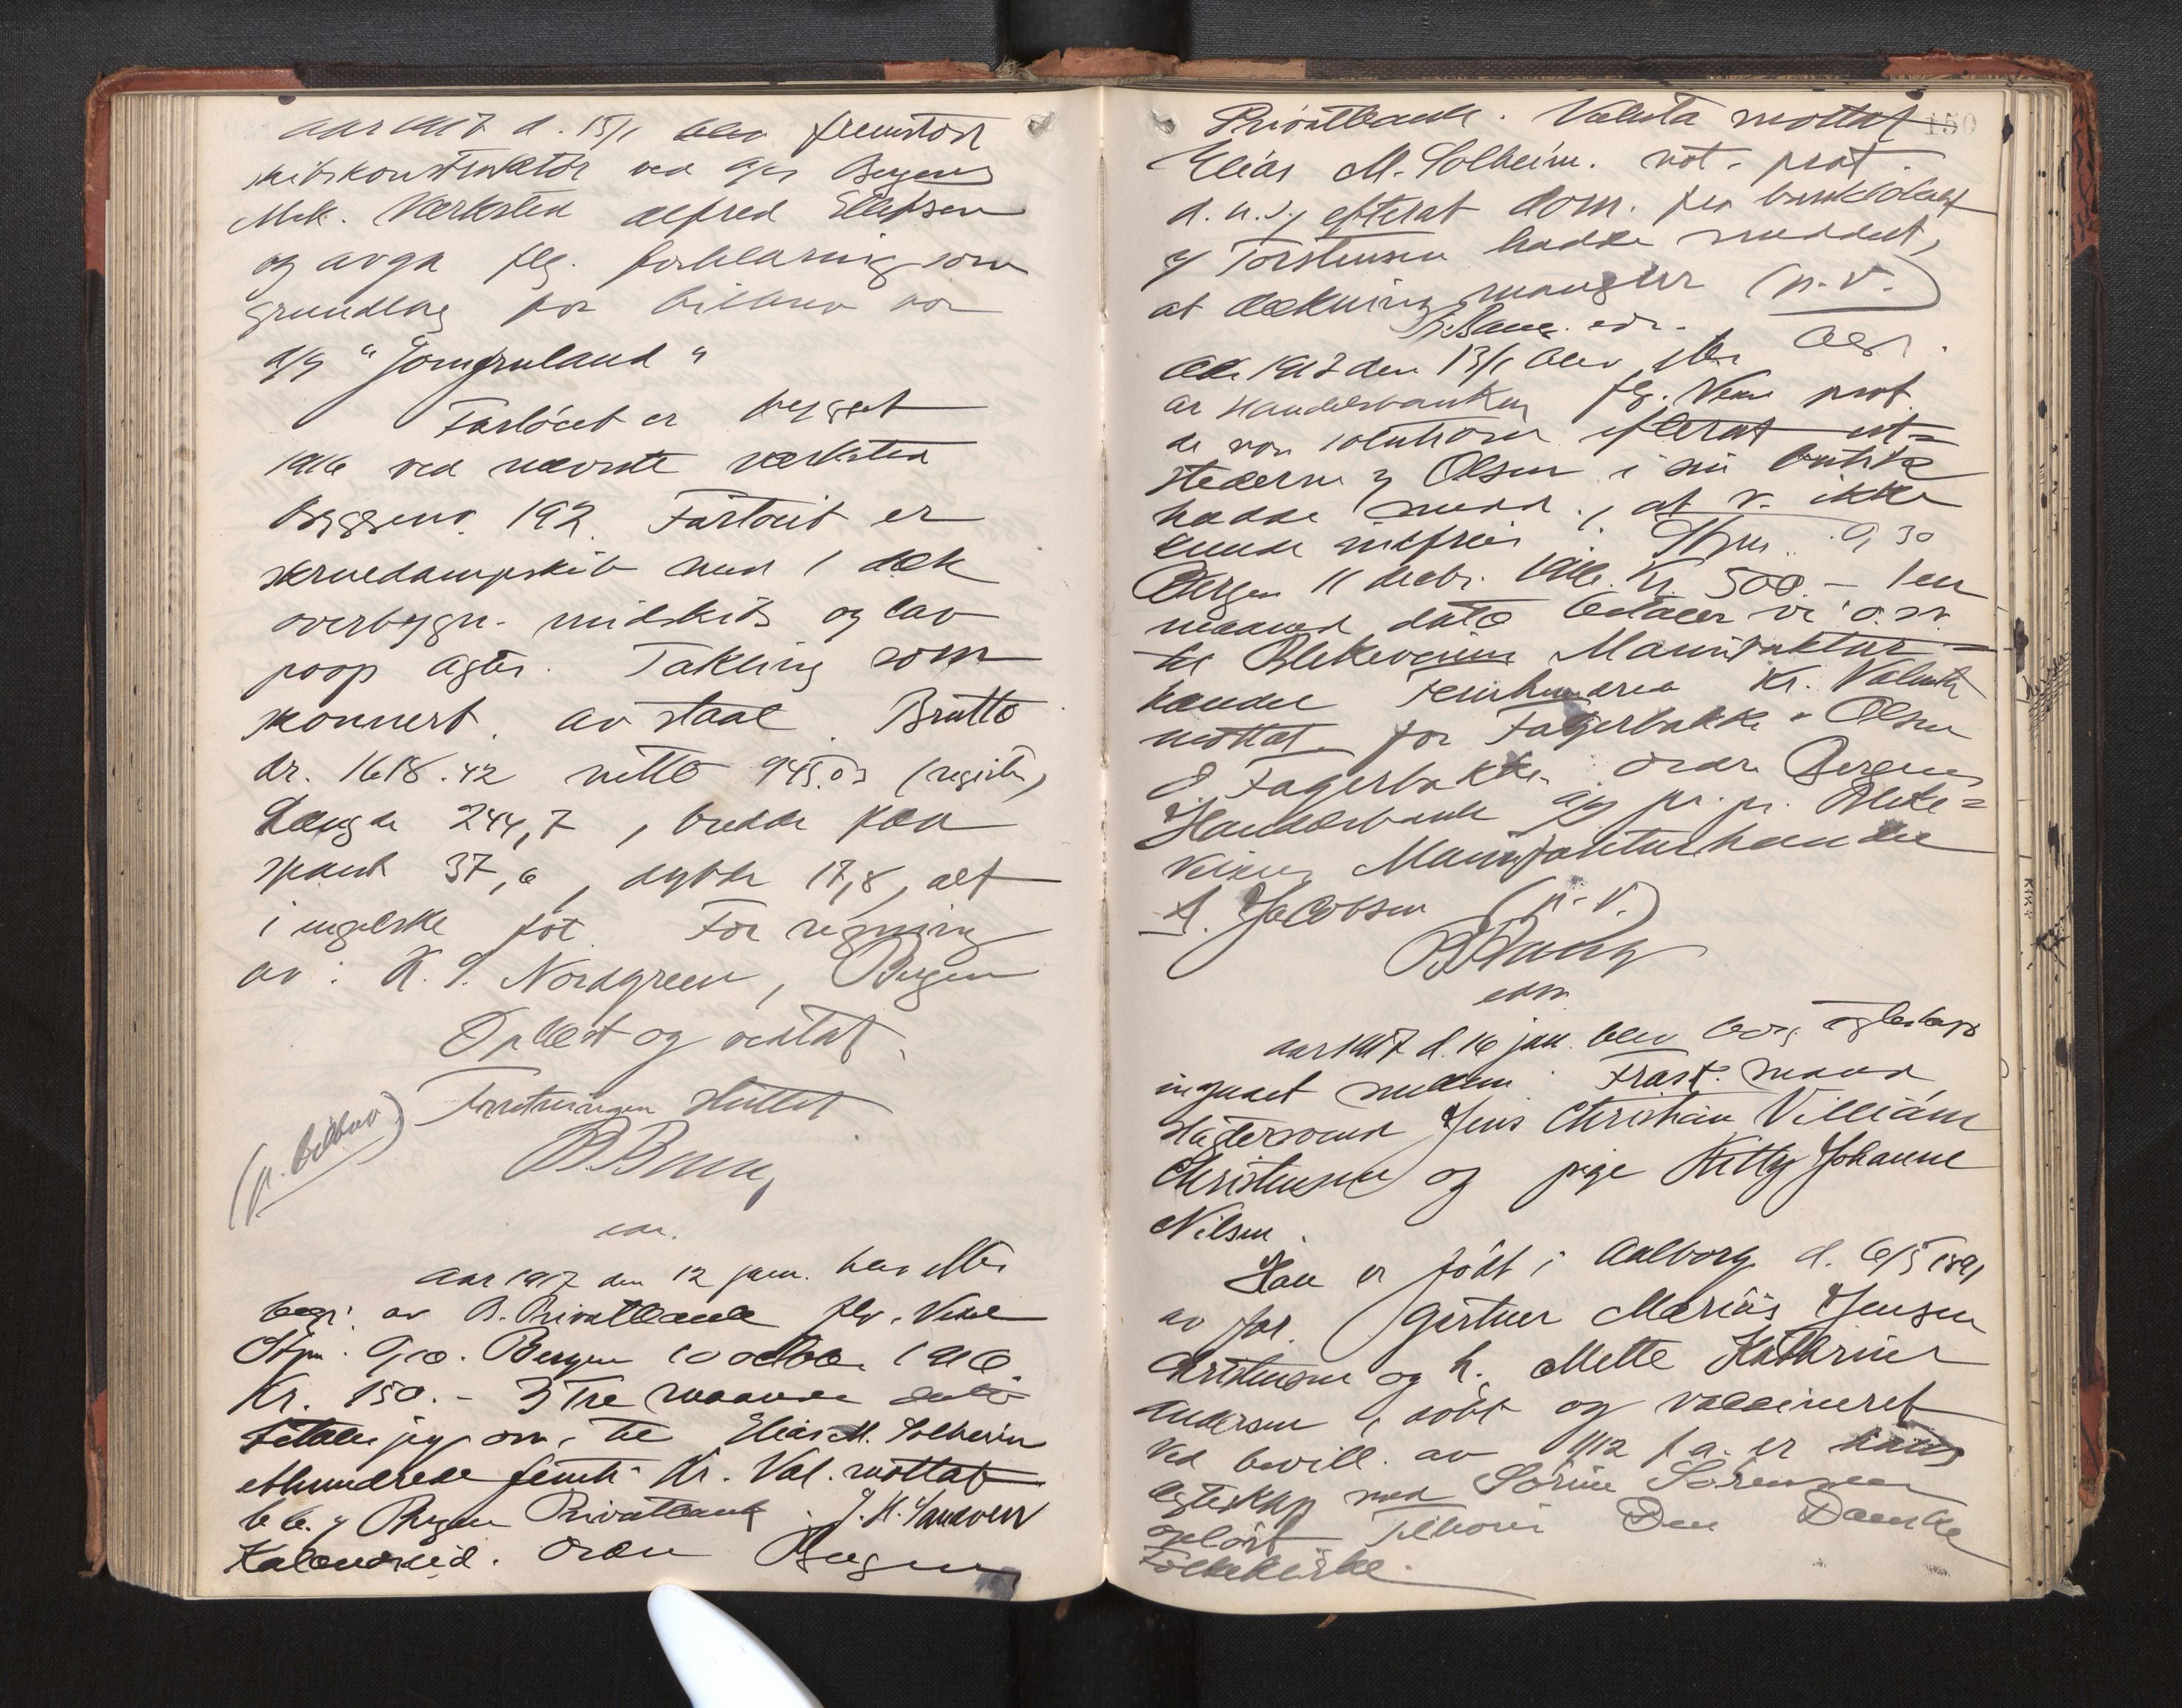 Aar 1917 d. 15/1 blev fremstod
skibskonstruktør ved A/S Bergens
Mek. Verksted Alfred Ellefsen
og avga flg. forklaring som
grundlag for bilbrev for
D/S "Jomfruland"
Fartöiet er bygget
1916 ved nævnte verksted
Byggeno. 192. Fartöiet er
skruedampskib med 1 dæk
overbygn. midskibs og lav
poop agter. Takling som
skonnert. av staal. Brutto
dr. 1618.42 netto 945.03 (register)
Længde 244,7, bredde paa
spant 37,6, dybde 17,8, alt
i engelske fot. For regning
av: K. S. Nordgreen, Bergen
Oplæst og vedtat.
Forretningen sluttet
(p. bilbrev)
B. Bang
edr.
Aar 1917 den 12 jan. blev efter
begj. av B. Privatbank flg. Veksel
Stpm. 0,10. Bergen 10 octbr. 1916
Kr. 150.- 3 Tre maaneder dato
betaler jeg til Elias M. Solheim
ethundrede femti Kr. Val. mottat
Bergens Privatbank. J. H. Sandven
Kalandseid. Ordre Bergens
150
Privatbank. Valuta mottat
Elias M. Solheim. not. prot.
d. u. s., efterat dom. ved bankfuldm.
Torstensen hadde meddelt,
at dækning mangler (n.v.)
B. Bang. edr.
Aar 1917 den 13/1 blev efter begj.
av Handelsbanken flg. Veksel prot.
de non solutione efterat ut=
stederne ved Olsen i sin butik
hadde medd., at v. ikke
kunde indfries. Stpm. 0,30
Bergen 11 decbr. 1916. Kr. 500.- 1 en
maaned dato betaler vi
til Blekeveiens Manufaktur=
handel femhundred Kr. Valuta
mottat. for Fagerbakke & Olsen
O Fagerbakke. Ordre Bergens
Handelsbank A/S pr. pr. Bleke=
veiens Manufakturhandel
A. Jacobsen (n.v.)
B Bang
edr
Aar 1917 d. 16 jan. blev borg. egteskap
ingaaet mellem Frask. mand
slagtersvend Jens Christian Villiam
Christensen og pige Kitty Johanne
Nilsen.
Han er födt i Aalborg d. 6/5 1891
av for. Gartner Marius Jensen
Christensen og h. Mette Kathrine
Andersen, döbt og vaccineret
Ved bevill. av 11/12 f.a. er hans
egteskap med Sörine Sörensen
oplöst. Tilhörer Den Danske
Folkekirke.